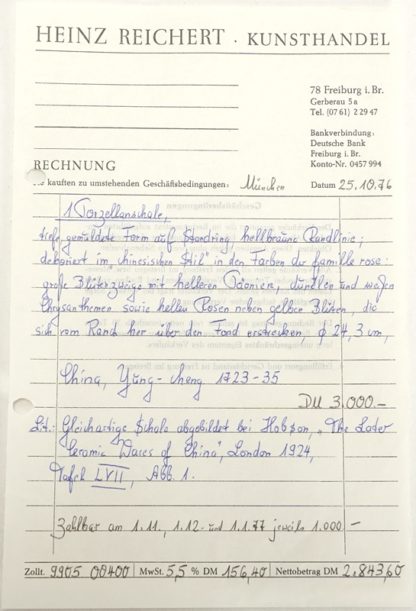 HEINZ REICHERT · KUNSTHANDEL
78 Freiburg i. Br.
Gerberau 5a
Tel. (07 61) 2 29 47
Bankverbindung:
Deutsche Bank
Freiburg i. Br.
Konto-Nr. 0457 994
RECHNUNG
Sie kauften zu umstehenden Geschäftsbedingungen: München Datum 25.10.76
1 Porzellanschale,
tiefe gemuldete Form auf Standring, hellbraune Randlinie;
dekoriert im „chinesischen Stil" in den Farben der famille rose:
große Blütenzweige mit helleren Päonien, dunklen und weißen
Chrysanthemen sowie hellen Rosen neben gelben Blüten, die
sich vom Rand her über den Fond erstrecken, ∅ 24,3 cm,
China, Yung-cheng 1723-35
DM 3.000.-
Lit.: Gleichartige Schale abgebildet bei Hobson, „The Later
Ceramic Wares of China", London 1924,
Tafel LVII, Abb. 1.
Zahlbar am 1.11., 1.12. und 1.1.77 jeweils 1.000.-
Zollt. 9905 00400 MwSt. 5,5 % DM 156,40 Nettobetrag DM 2.843,60